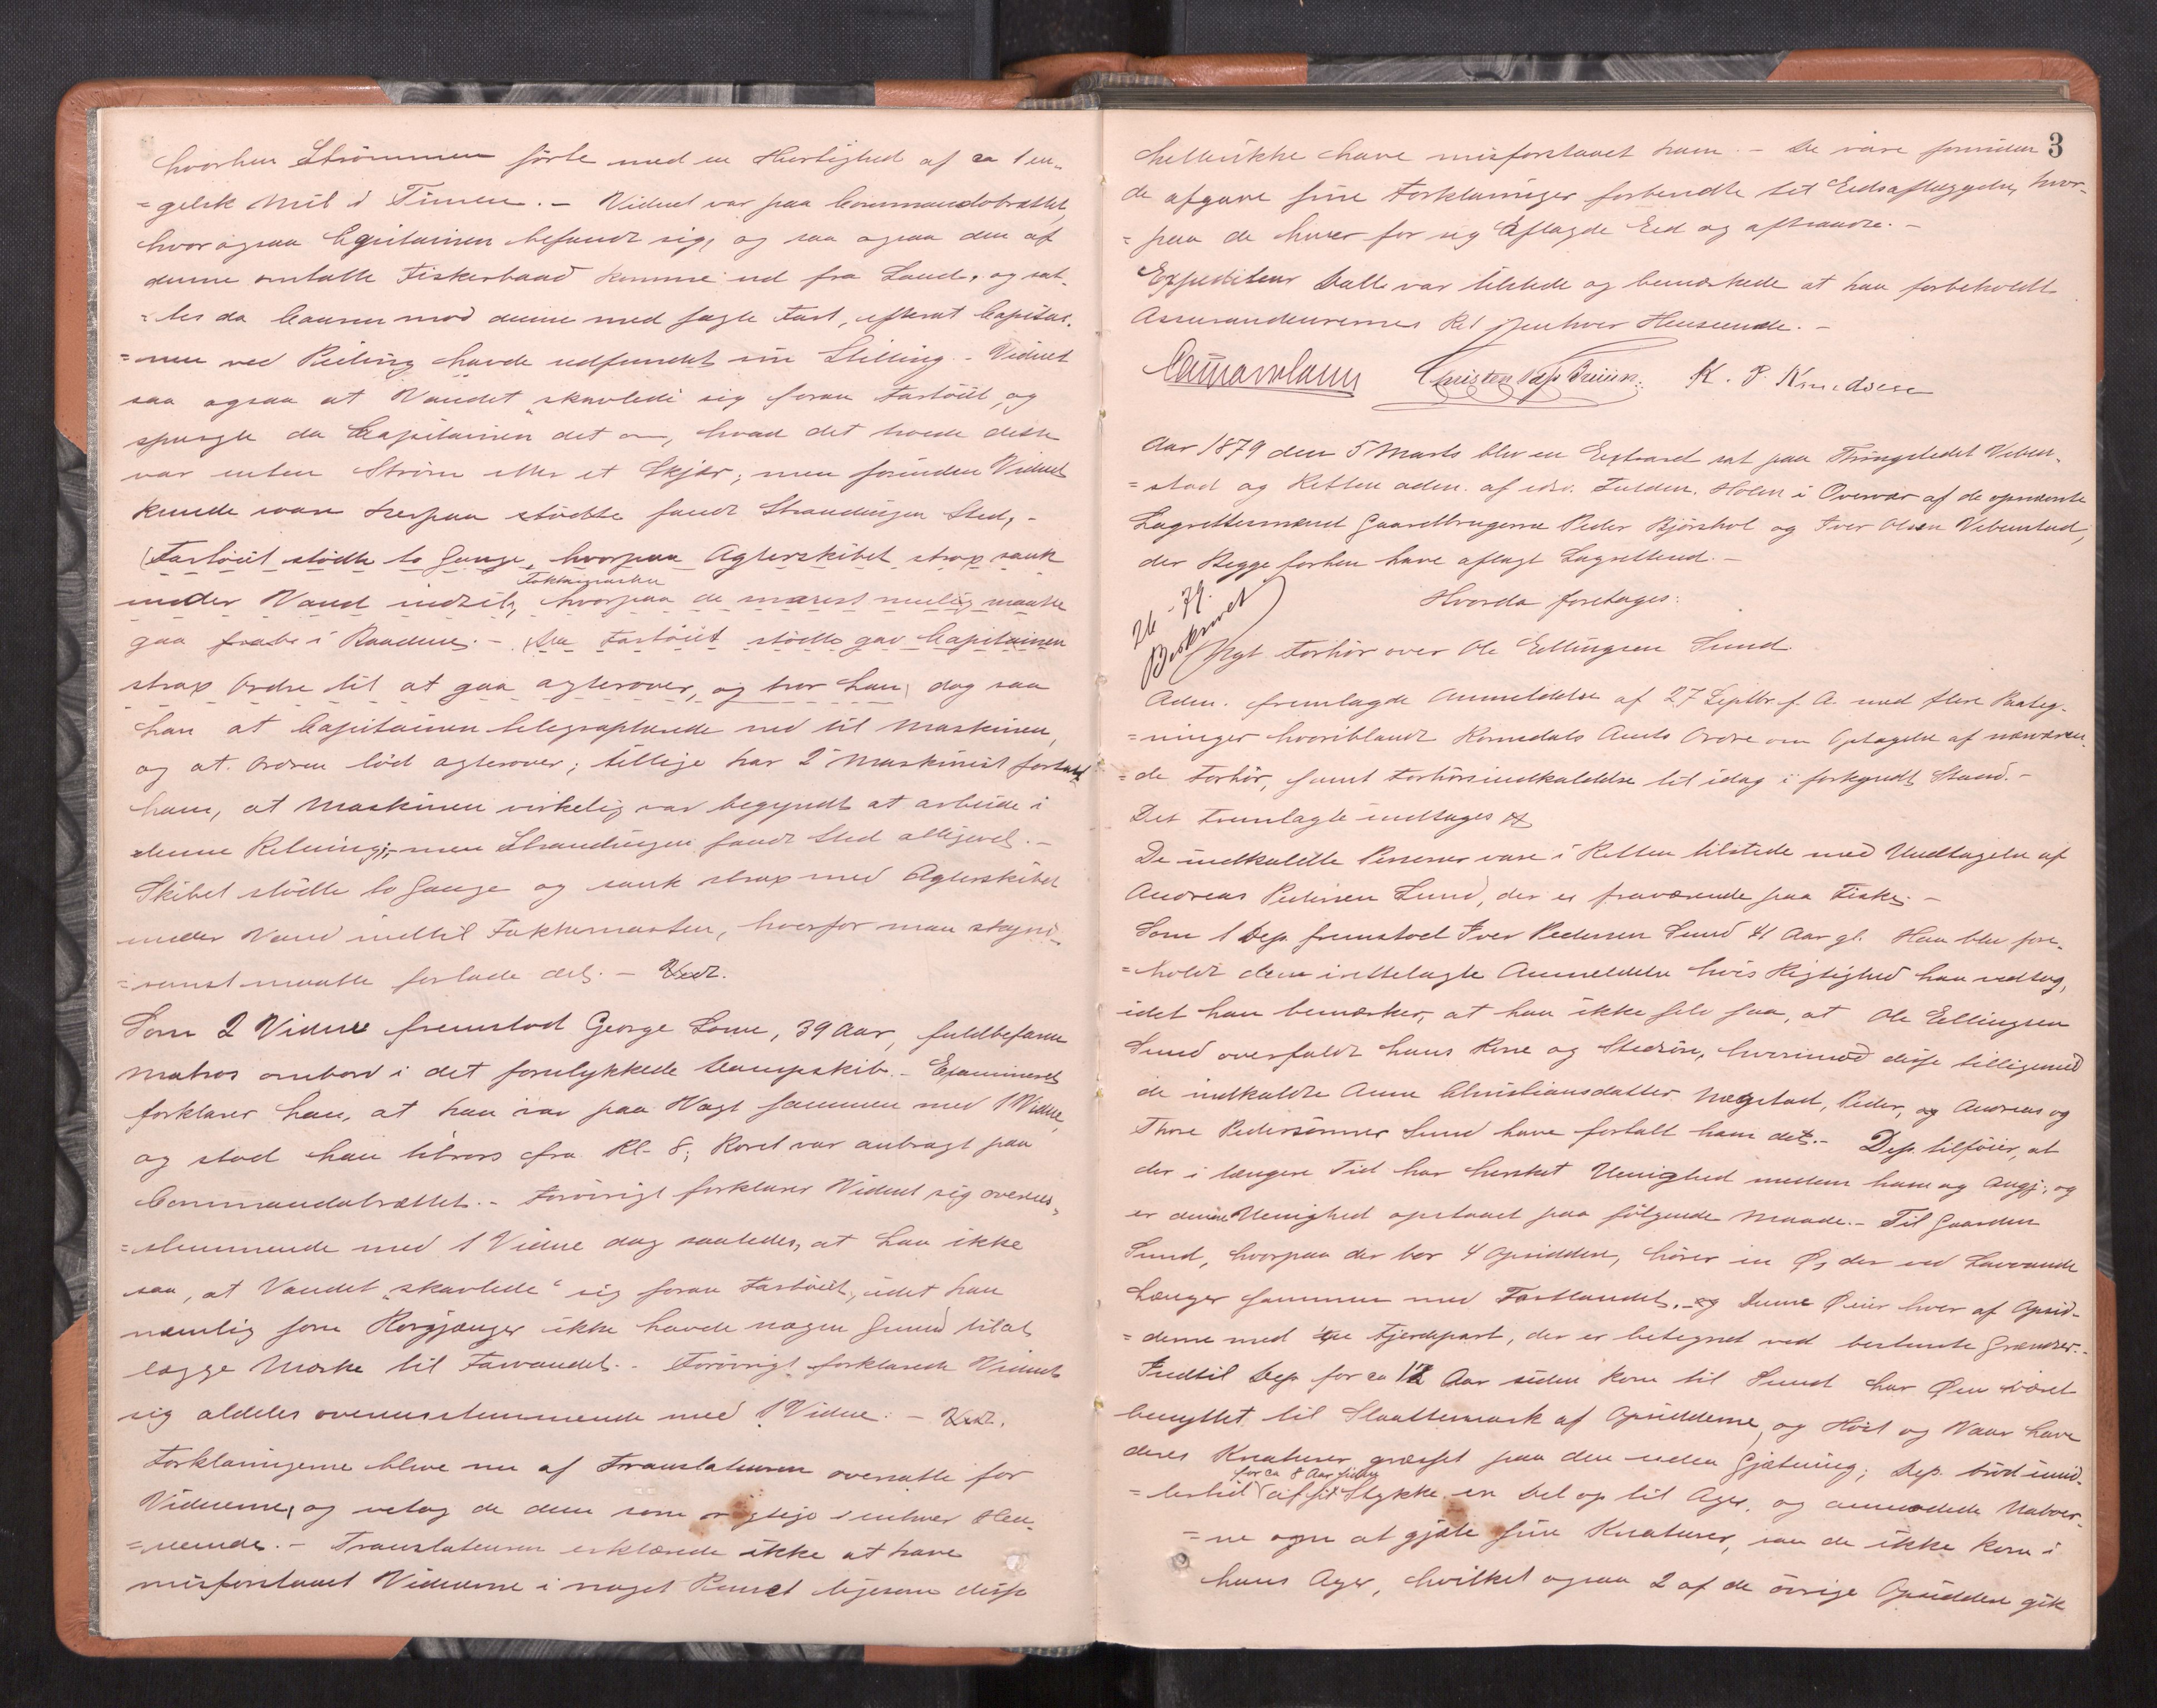 hvorhen Strömmen förte med en Hurtighed af ca 1 en-
=gelsk Mil i Timen. - Vidnet var paa Commandobrættet,
hvor ogsaa Capitainen befandt sig, og saa ogsaa den af
denne omtalte Fiskerbaad komme ud fra Land, og sat-
=tes da Coursen mod denne med sagte Fart, efterat Capitai-
=nen ved Peiling havde udfundet sin Stilling. - Vidnet
saa ogsaa at Vandet "skavlede" sig foran Fartöiet, og
spurgte da Capitainen det om, hvad det troede dette
var enten Ström eller et Skjær; men forinden Vidnet
kunde svare herpaa stödte fandt Strandingen Sted, -
(Fartöiet stödte to Gange, hvorpaa Agterskibet strax sank
under Vand indtil, Fokkemasten hvorpaa de snarest mulig maatte
gaa fraabo i Baadene. - (Da Fartöiet stödte gav Capitainen
strax Ordre til at gaa agterover, og tror han, dog saa
han at Capitainen telegrapherede ned til Maskinen,
og at Ordren löd agterover; tillige har 2 Maskinist fortalt
ham, at Maskinen virkelig var begyndt at arbeide i
denne Retning; men Strandingen fandt Sted alligevel. -
Skibet stödte to Gange og sank strax med Agterskibet
under Vand indtil Fokkemasten, hvorfor man
maatte forlade det. - Vedt.
Som 2 Vidne fremstod George Lowe, 39 Aar, fuldbefaren
Matros ombord i det forulykkede Dampskib. - Examineret
forklarer han, at han var paa Vagt sammen med 1 Vidne,
og stod han tilrors fra Kl. 8; Roret var anbragt paa
Commandobrættet. - Forövrigt forklarer Vidnet sig overens-
=stemmende med 1 Vidne dog saaledes, at han ikke
saa, at Vandet "skavlede" sig foran Fartöiet, idet han
nemlig som Rorgjænger ikke havde nogen Grund til at
lægge Mærke til Farvandet. - Forövrigt forklarede Vidnet
sig aldeles overensstemmende med 1 Vidne. - Vedt.
Forklaringerne bleve nu af Translateuren oversatte for
Vidnerne, og vedtog de dem som rigtige i enhver Hen-
=seende. - Translateuren erklærede ikke at have
misforstaaet Vidnerne i noget Punct ligesom disse
3
hellerikke have misforstaaet ham. - De vare forinden
de afgave sine Forklaringer forberedte til Edsaflæggelse, hvor-
=paa de hver for sig aflagde Eed og aftraadte. -
Expediteur Dall var tilstede og bemærkede at han forbeholdt
Assurandeurernes Ret i enhver Henseende. -
K. P. Knudsen
Aar 1879 den 5 Marts blev en Extraret sat paa Thingstedet Veben-
=stad og Retten adm. af edsv. Fuldm. Holm i Overvær af de opnævnte
Lagrettesmænd Gaardbrugerne Peder Bjørshol og Iver Olsen Vebenstad,
der Begge forhen have aflagt Lagretteed. -
Hvorda foretages:
26 - 79.
Beskrevet
Pgt. Forhör over Ole Ellingsen Sund.
Adm. fremlagde Anmeldelse af 27 Septbr. f. A. med flere Paateg-
=ninger hvoriblandt Romsdals Amts Ordre om Optagelse af nærværen-
=de Forhör, samt Forhörsindkaldelse til idag i forkyndt Stand. -
Det Fremlagte indtages
De indkaldte Personer vare i Retten tilstede med Undtagelse af
Andreas Pedersen Sund, der er fraværende paa Fiske. -
Som 1 Dep. fremstod Iver Pedersen Sund 41 Aar gl. Han blev fore-
=holdt den irettelagte Anmeldelse hvis Rigtighed han vedtog,
idet han bemærker, at han ikke selv saa, at Ole Ellingsen
Sund overfaldt hans Kone og Stedsön, hvorimod disse tilligemed
de indkaldte Anne Christiansdatter Nægstad, Peder, og Andreas og
Thore Pedersönner Sund have fortalt ham det. - Dep. tilföier, at
der i længere Tid har hersket Uenighed mellem ham og Angj., og
er denne Uenighed opstaaet paa fölgende Maade. - Til Gaarden
Sund, hvorpaa der bor 4 Opsiddere, hörer en Ø, der ved Lavvande
hænger sammen med Fastlandet. - og Denne Ø eier hver af Opsid-
=derne med en Fjerdepart, der er betegnet ved bestemte Grændser. -
Indtil Dep. for ca 12 Aar siden kom til Sund har Øen været
benyttet til Slaattemark af Opsidderne, og Höst og Vaar have
deres Kreaturer græsset paa den uden Gjætning; Dep. bröd imid-
=lertid for ca 8 Aar siden af sit Stykke en Del op til Ager, og anmodede Naboer-
=ne om at gjæte sine Kreaturer, saa de ikke kom i
hans Ager, hvilket ogsaa 2 af de övrige Opsiddere gik